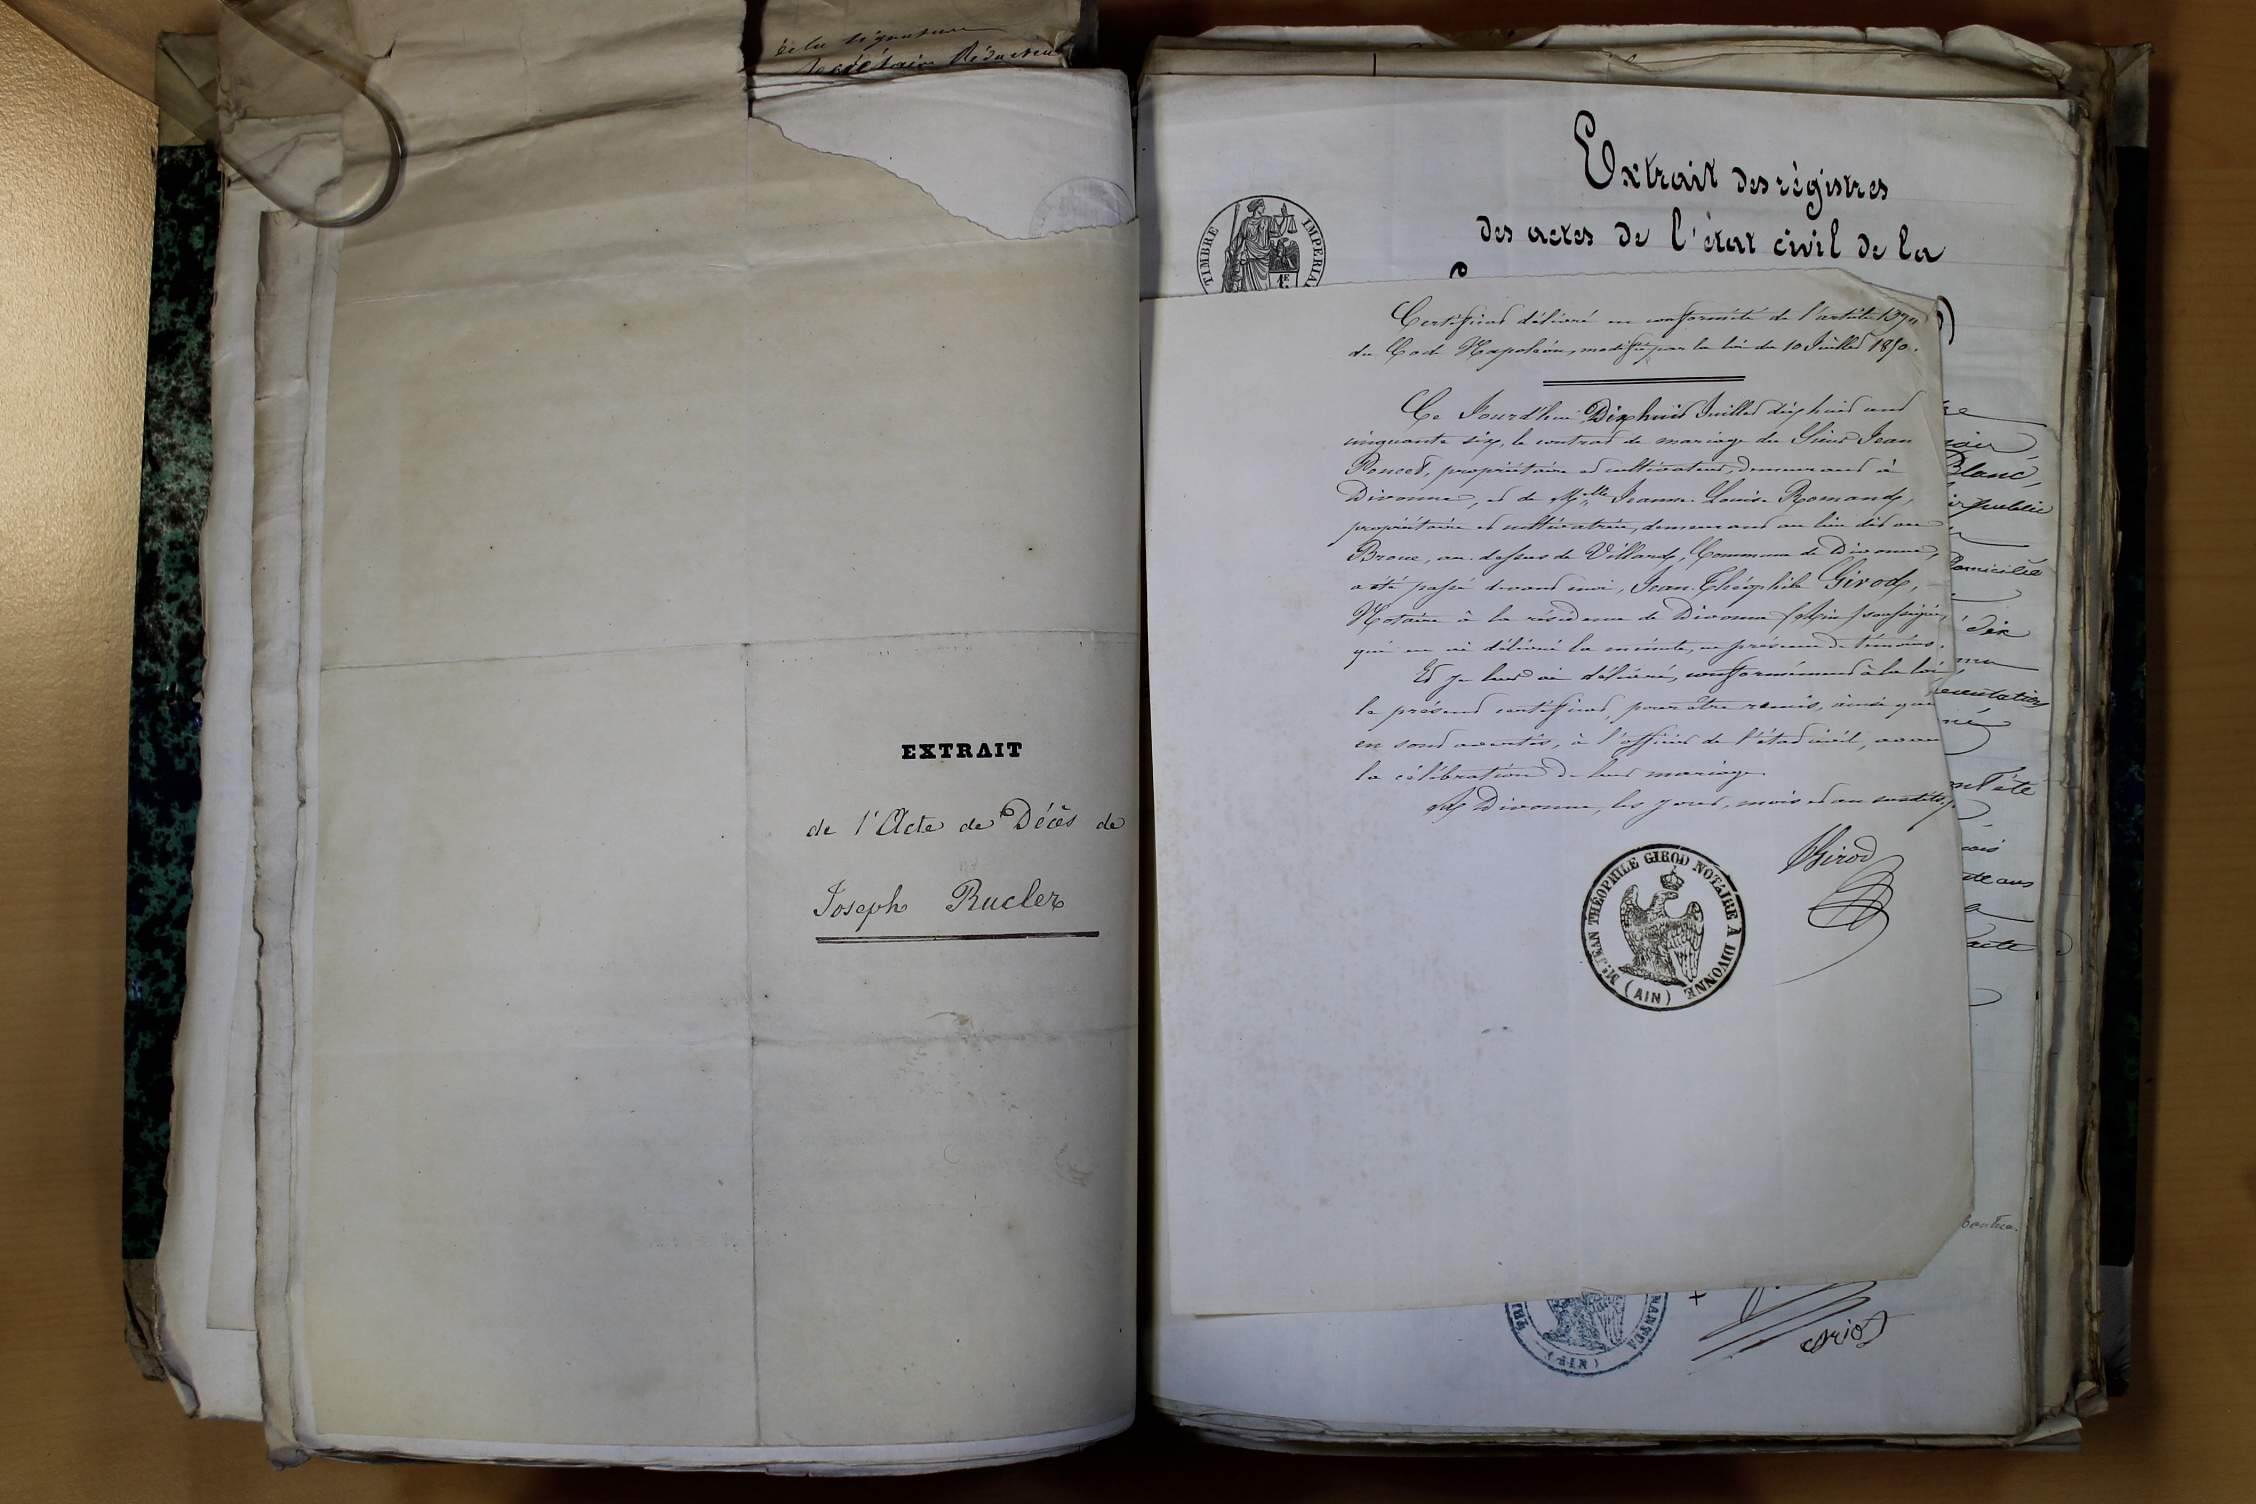 et la signature
Secrétaire Rédacteur
EXTRAIT
de l'Acte de Décès de
Joseph Rucler
Extrait des régistres
des actes de l'état civil de la
TIMBRE IMPERIAL
Certificat délivré en conformité de l'article 1394
du Code Napoléon, modifié par la loi du 10 Juillet 1850.
Ce Jourd'hui Dix huit Juillet dix huit cent
cinquante six, le contrat de mariage du Sieur Jean
Poncet, propriétaire et cultivateur, demeurant à
Divonne, et de Melle Jeanne Louise Romand,
propriétaire et cultivatrice, demeurant au lieu dit au
Broue, au dessus de Villard, Commune de Divonne,
a été passé devant moi, Jean Théophile Girod,
Notaire à la résidence de Divonne (Ain) soussigné,
qui en ai délivré la minute, en présence de témoins.
Et je leur ai délivré, conformément à la loi,
le présent certificat, pour être remis, ainsi que
en sont avertis, à l'officier de l'état civil, avant
la célébration de leur mariage.
A Divonne, les jour, mois et an susdits.
Girod
Me JEAN THÉOPHILE GIROD NOTAIRE À DIVONNE
(AIN)
Blanc,
publié
Domiciliée
dix
été
acte
(AIN)